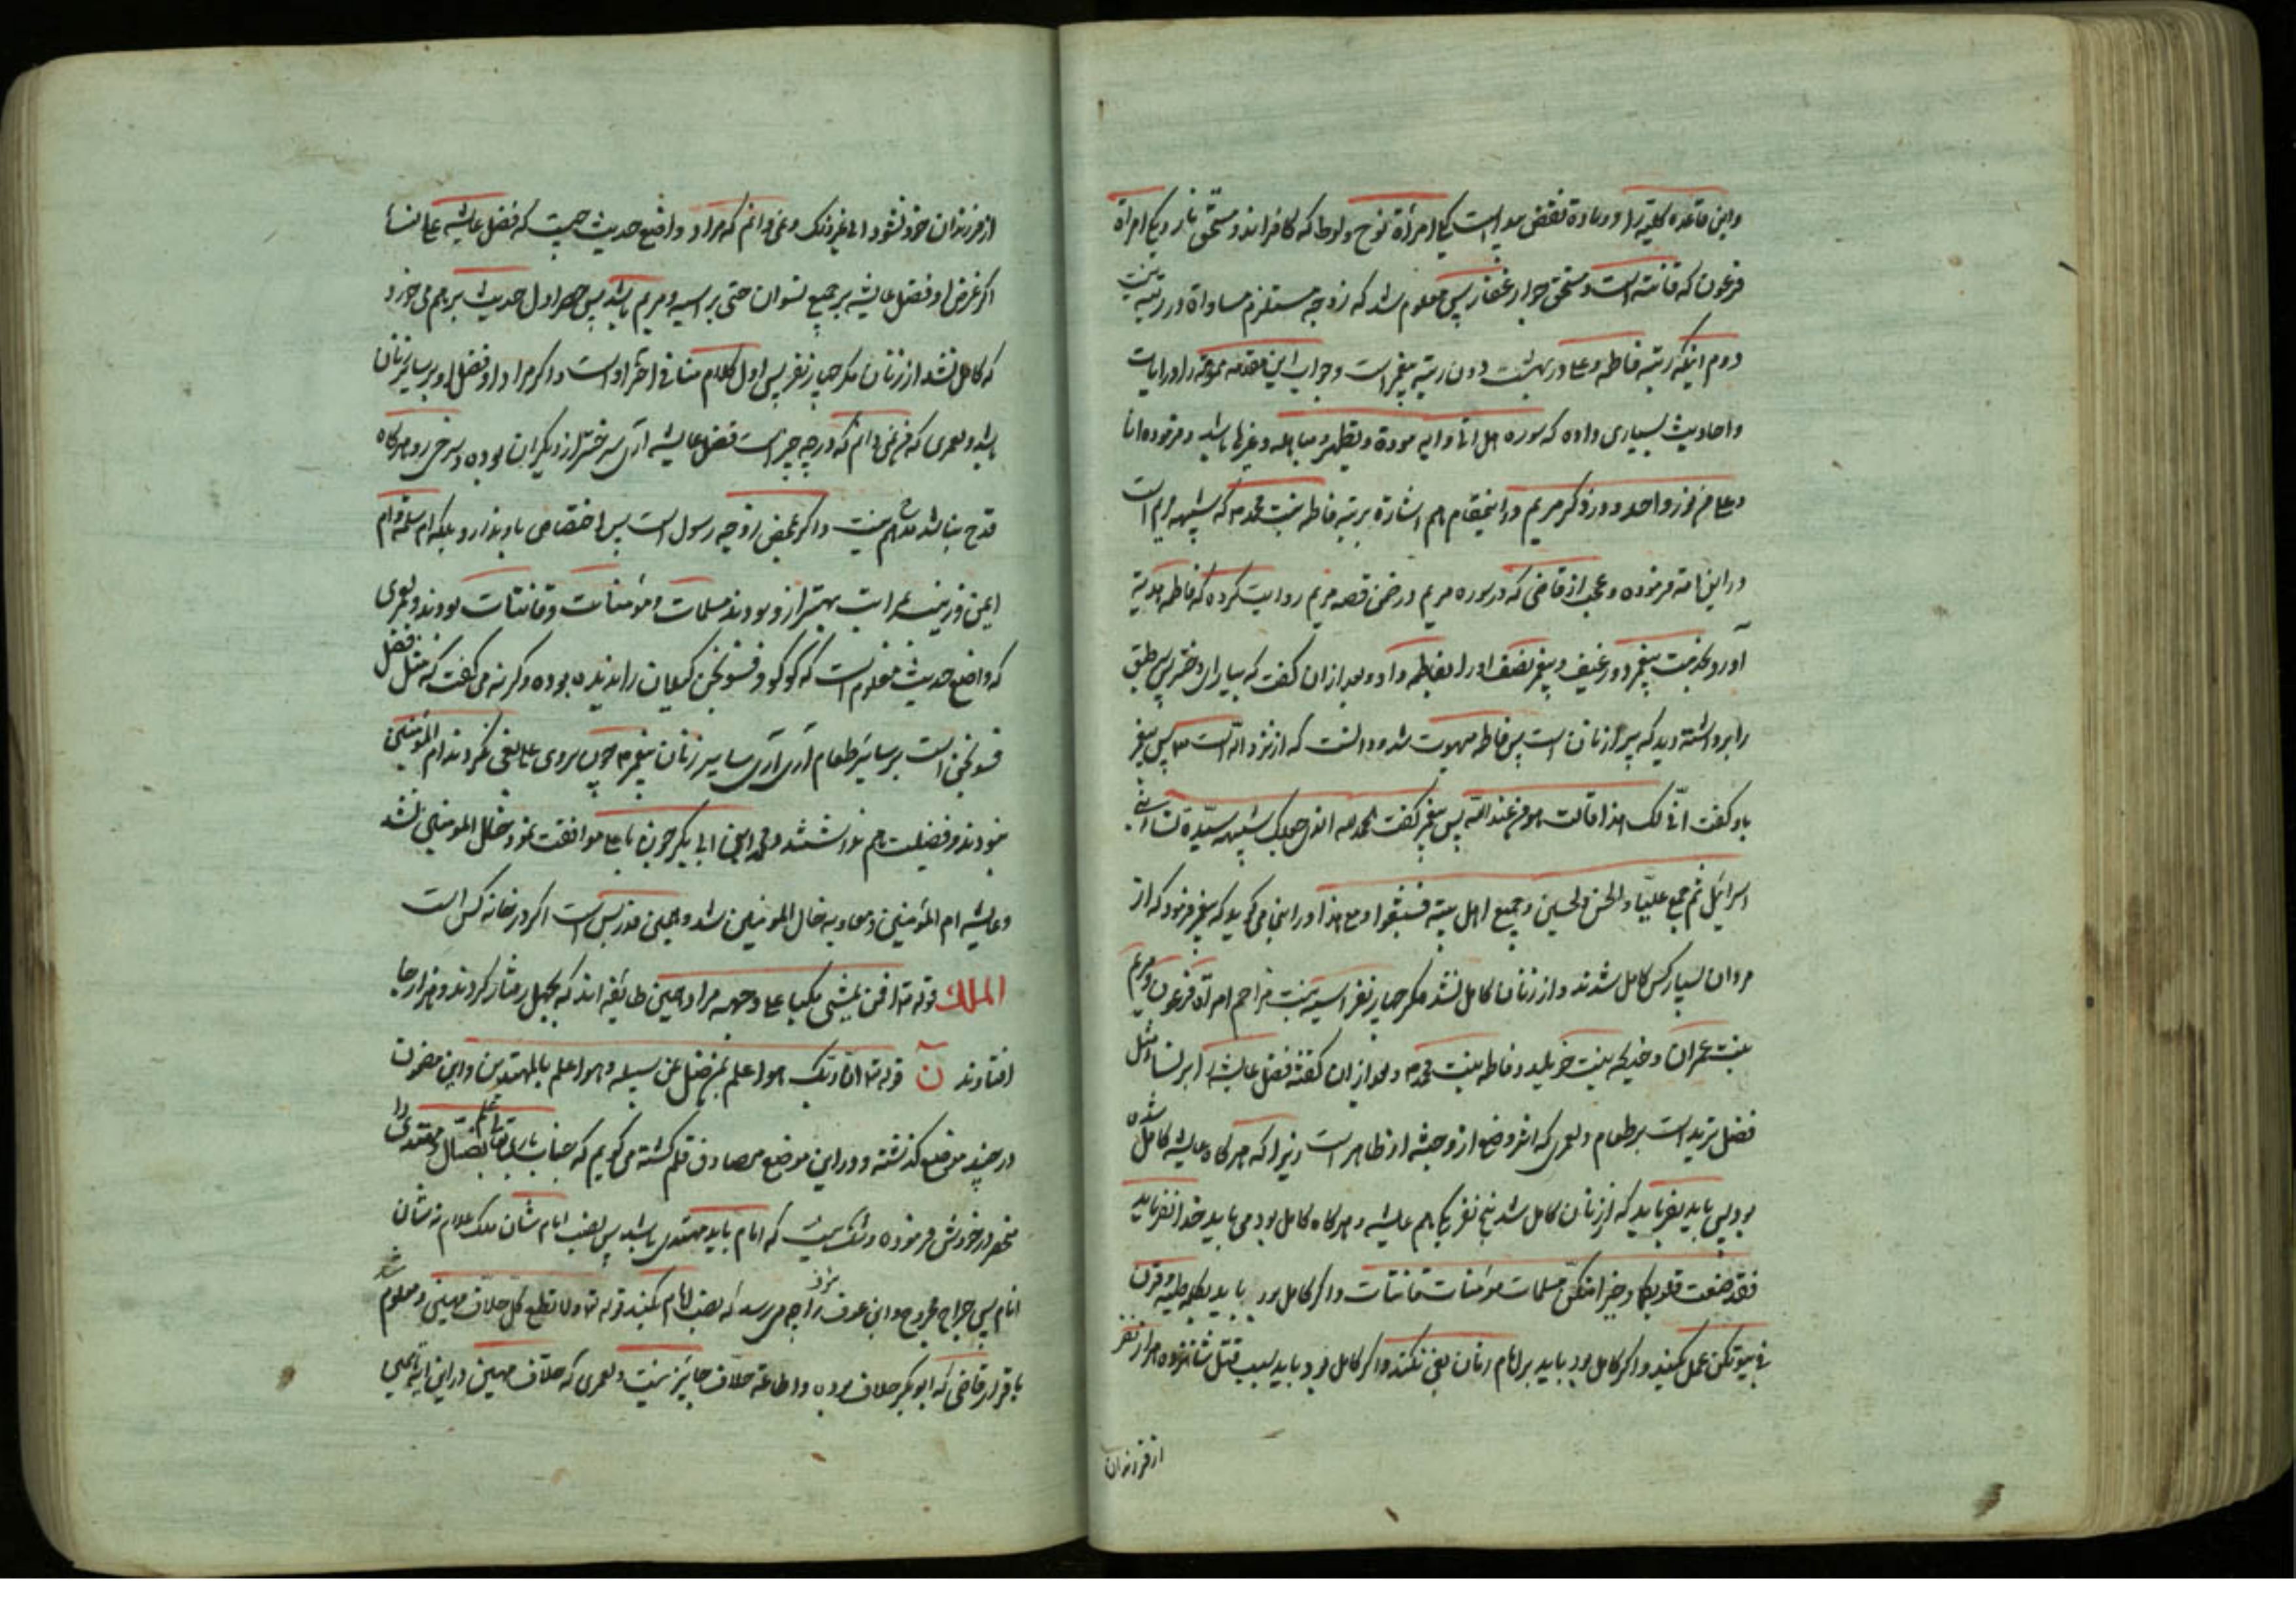 واین قاعده کلیه را دو ماده نقض پیداست یکی امرأة نوح ولوط که کافراند و مستحق نار ویکی امرأة
فرعون که قانته است و مستحق جوار غفار پس معلوم شد که زوجیه مستلزم مساواة در رتبه نیست
دوم اینکه رتبه فاطمه وعلی در بهشت دون رتبه پیغمبر است وجواب این مقدمه را در ایات
واحادیث بسیاری داده که سوره هل اتی وایه مودة وتطهیر ومباهله وغیرها باشد وفرموده انا
وعلی من نور واحد ودر ذکر مریم در اینمقام هم اشارة برتبه فاطمه بنت محمد ص که شبیهه مریم است
در این امة فرموده وعجب از قاضی که در سوره مریم در ضمن قصه مریم روایت کرده که فاطمه هدیة
آورد بخدمت پیغمبر دو رغیف وپیغمبر نصف او را بفاطمه داد وبعد از ان گفت که بیا رای دختر پس طبق
را برداشته دید که پر از نان است پس فاطمه مبهوت شد ودانست که از نزد الله است پس پیغمبر
باو گفت انّی لک هذا قالت هو من عند الله پس پیغمبر گفت الحمد لله الذی جعلک شبیهه سیّدة نساء بنی
اسرائیل ثم جمع علیّا والحسن والحسین وجمیع اهل بیته فشبعوا ومع هذا در اینجا میگوید که پیغمبر فرمود که از
مردان بسیار کس کامل شدند واز زنان کامل نشد مگر چهار نفر اسیه بنت مزاحم امرأة فرعون ومریم
بنت عمران وخدیجه بنت خویلد وفاطمه بنت محمد ص وبعد از ان گفته فضل عایشه بر نسا مثل
فضل ثرید است بر طعام ولعمری که اثر وضع از وجهش از ظاهر است زیرا که هرگاه عایشه کامل شده
بود پس باید بفرماید که از زنان کامل شد پنج نفر یکی هم عایشه وهرگاه کامل بود می باید خدا نفرماید
فقد صغت قلوبکما وخیرا منکنّ مسلمات مؤمنات قانتات واگر کامل بود باید بکلمه طیبه وقرن
فی بیوتکن عمل بکند واگر کامل بود باید بر امام زمان بغی نکند واگر کامل بود باید سبب قتل شانزده هزار نفر
از فرزندان
از فرزندان خود نشود الی غیر ذلک ونمی دانم که مراد واضع حدیث چیست که فضل عایشه علی النساء
اگر غرض او فضل عایشه بر جمیع نسوان حتی بر اسیه ومریم باشد پس حصر اول حدیث بر هم می خورد
که کامل نشد از زنان مگر چهار نفر پس اول کلام منافی آخر او است واگر مراد او فضل او بر سایر زنان
باشد ولعمری که من نمی دانم که در چه چیز است فضل عایشه آری سرختر از دیگران بوده وسرخی رو هرگاه
قدح نباشد مدح هم نیست واگر بمحض زوجیه رسول است پس اختصاص باو ندارد بلکه ام سلمه وام
ایمن وزینب بمراتب بهتر از او بودند مسلمات ومؤمنات وقانتات بودند ولعمری
که واضع حدیث معلوم است که کوکو وفسنجن گیلان را ندیده بوده وگرنه می گفت که مثل فضل
فسنجن است بر سایر طعام آری آری سایر زنان پیغمبر ص چون بر وی علی بغی نکردند ام المؤمنین
نبودند وفضیلت هم نداشتند ومحمد ابن ابی بکر چون با علی موافقت نمود خال المومنین نشد
وعایشه ام المؤمنین ومعاویه خال المومنین شد وهمین قدر بس است اگر در خانه کس است
الملک قوله تعالی افمن یمشی مکبّا علی وجهه مراد همین طائفه اند که بجهل رفتار کردند وهزار جا
افتادند ن قوله تعالی انّ ربّک هو اعلم بمن ضلّ عن سبیله وهو اعلم بالمهتدین واین مضمون
در چند موضع گذشته ودر این موضع مصادف قلم گشته می گویم که جناب باری تعالی علم بضالّ ومهتدی را
منحصر در خودش فرموده وشک نیست که امام باید مهتدی باشد پس نصب امام شان ملک علام نه شان
انام پس جراح مجروح وابن عوف بزاز را چه می رسد که نصب امام بکنند قوله تعالی ولا تطع کل حلاّف مهین ومعلوم شد
باقرار قاضی که ابو بکر حلاف بوده واطاعة حلاف جایز نیست ولعمری که حلاّف مهین در این آیه